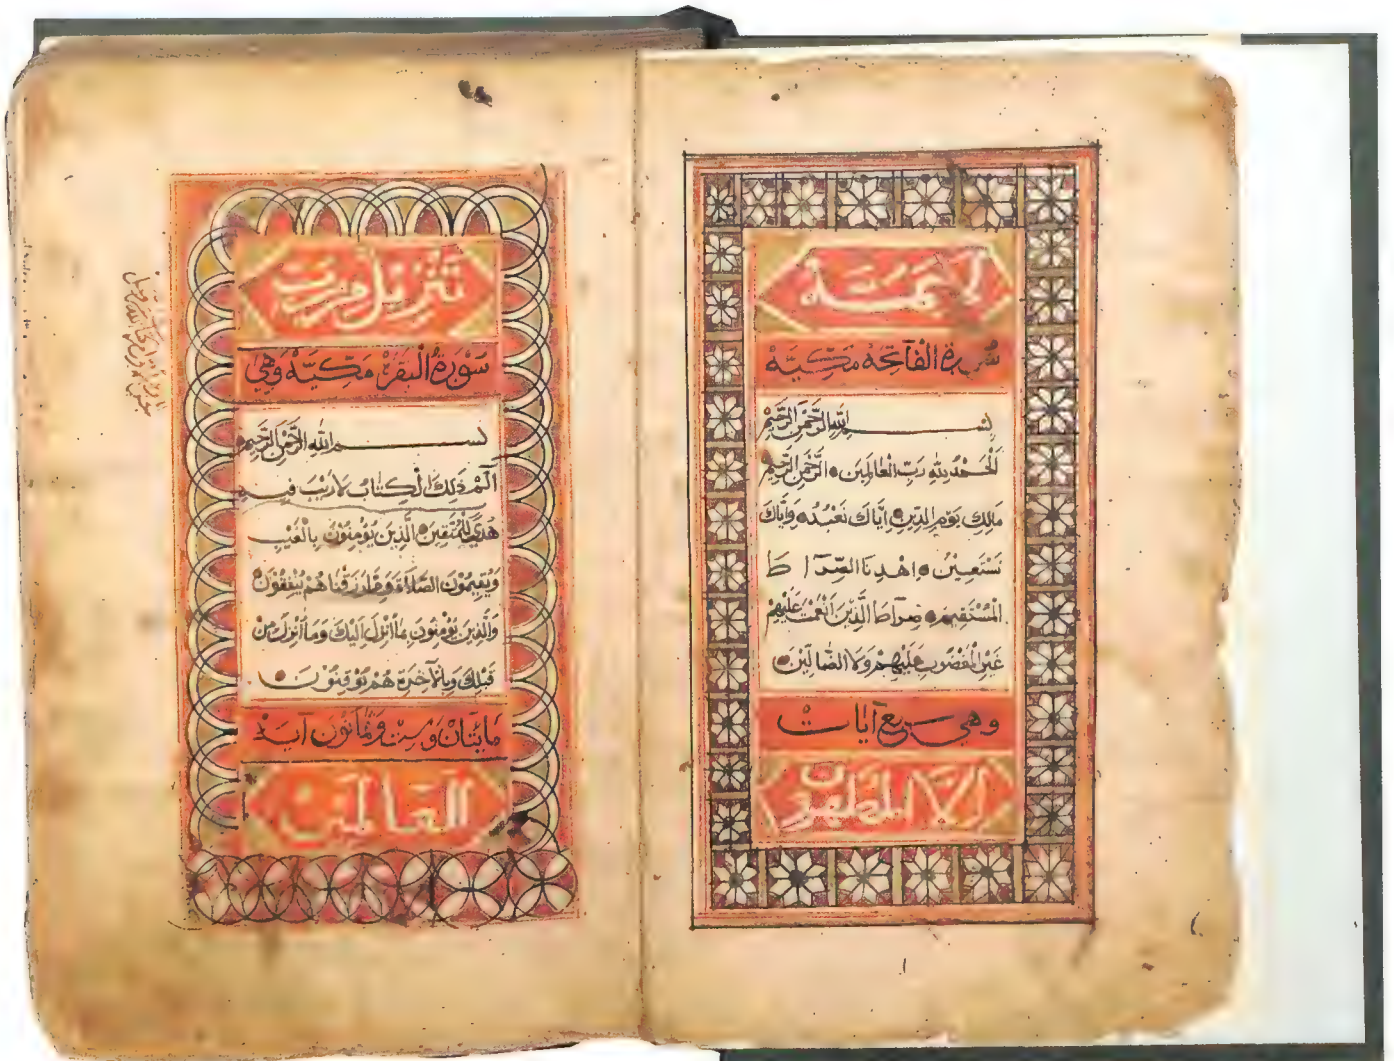 لا يمسه
سورة الفاتحه مكيه
بسم الله الرحمن الرحيم
اَلْحَمْدُ لِلّٰهِ رَبِّ الْعَالَمِيَن الرَّحْمٰنِ الرَّحِيمِ
مَالِكِ يَوْمِ الدِّينِ اِيَّاكَ نَعْبُدُ وَاِيَّاكَ
نَسْتَعِينُ اِهْدِنَا الصِّرَا طَ
الْمُسْتَقِيمَ صِرَاطَ الَّذِينَ اَنْعَمْتَ عَلَيْهِمْ
غَيْرِ الْمَغْضُوبِ عَلَيْهِمْ وَلَا الضَّالِّينَ
وهي سبع آيات
الا المطهرون
تَنْزِيلٌ مِنْ رَبِّ
سُورَةُ الْبَقَرَة مَكِّيَّة وَهِيَ
بسم الله الرحمن الرحيم
الٓمٓ ذٰلِكَ الْكِتَابُ لَا رَيْبَ فِيهِ
هُدًى لِلْمُتَّقِينَ الَّذِينَ يُؤْمِنُونَ بِالْغَيْبِ
وَيُقِيمُونَ الصَّلَاةَ وَمِمَّا رَزَقْنَاهُمْ يُنْفِقُونَ
وَالَّذِينَ يُؤْمِنُونَ بِمَا اُنْزِلَ اِلَيْكَ وَمَا اُنْزِلَ مِنْ
قَبْلِكَ وَبِالْآخِرَةِ هُمْ يُوقِنُونَ
مَائَتَانْ وَسِتْ وَثَمَانُونَ آيَة
العالمين